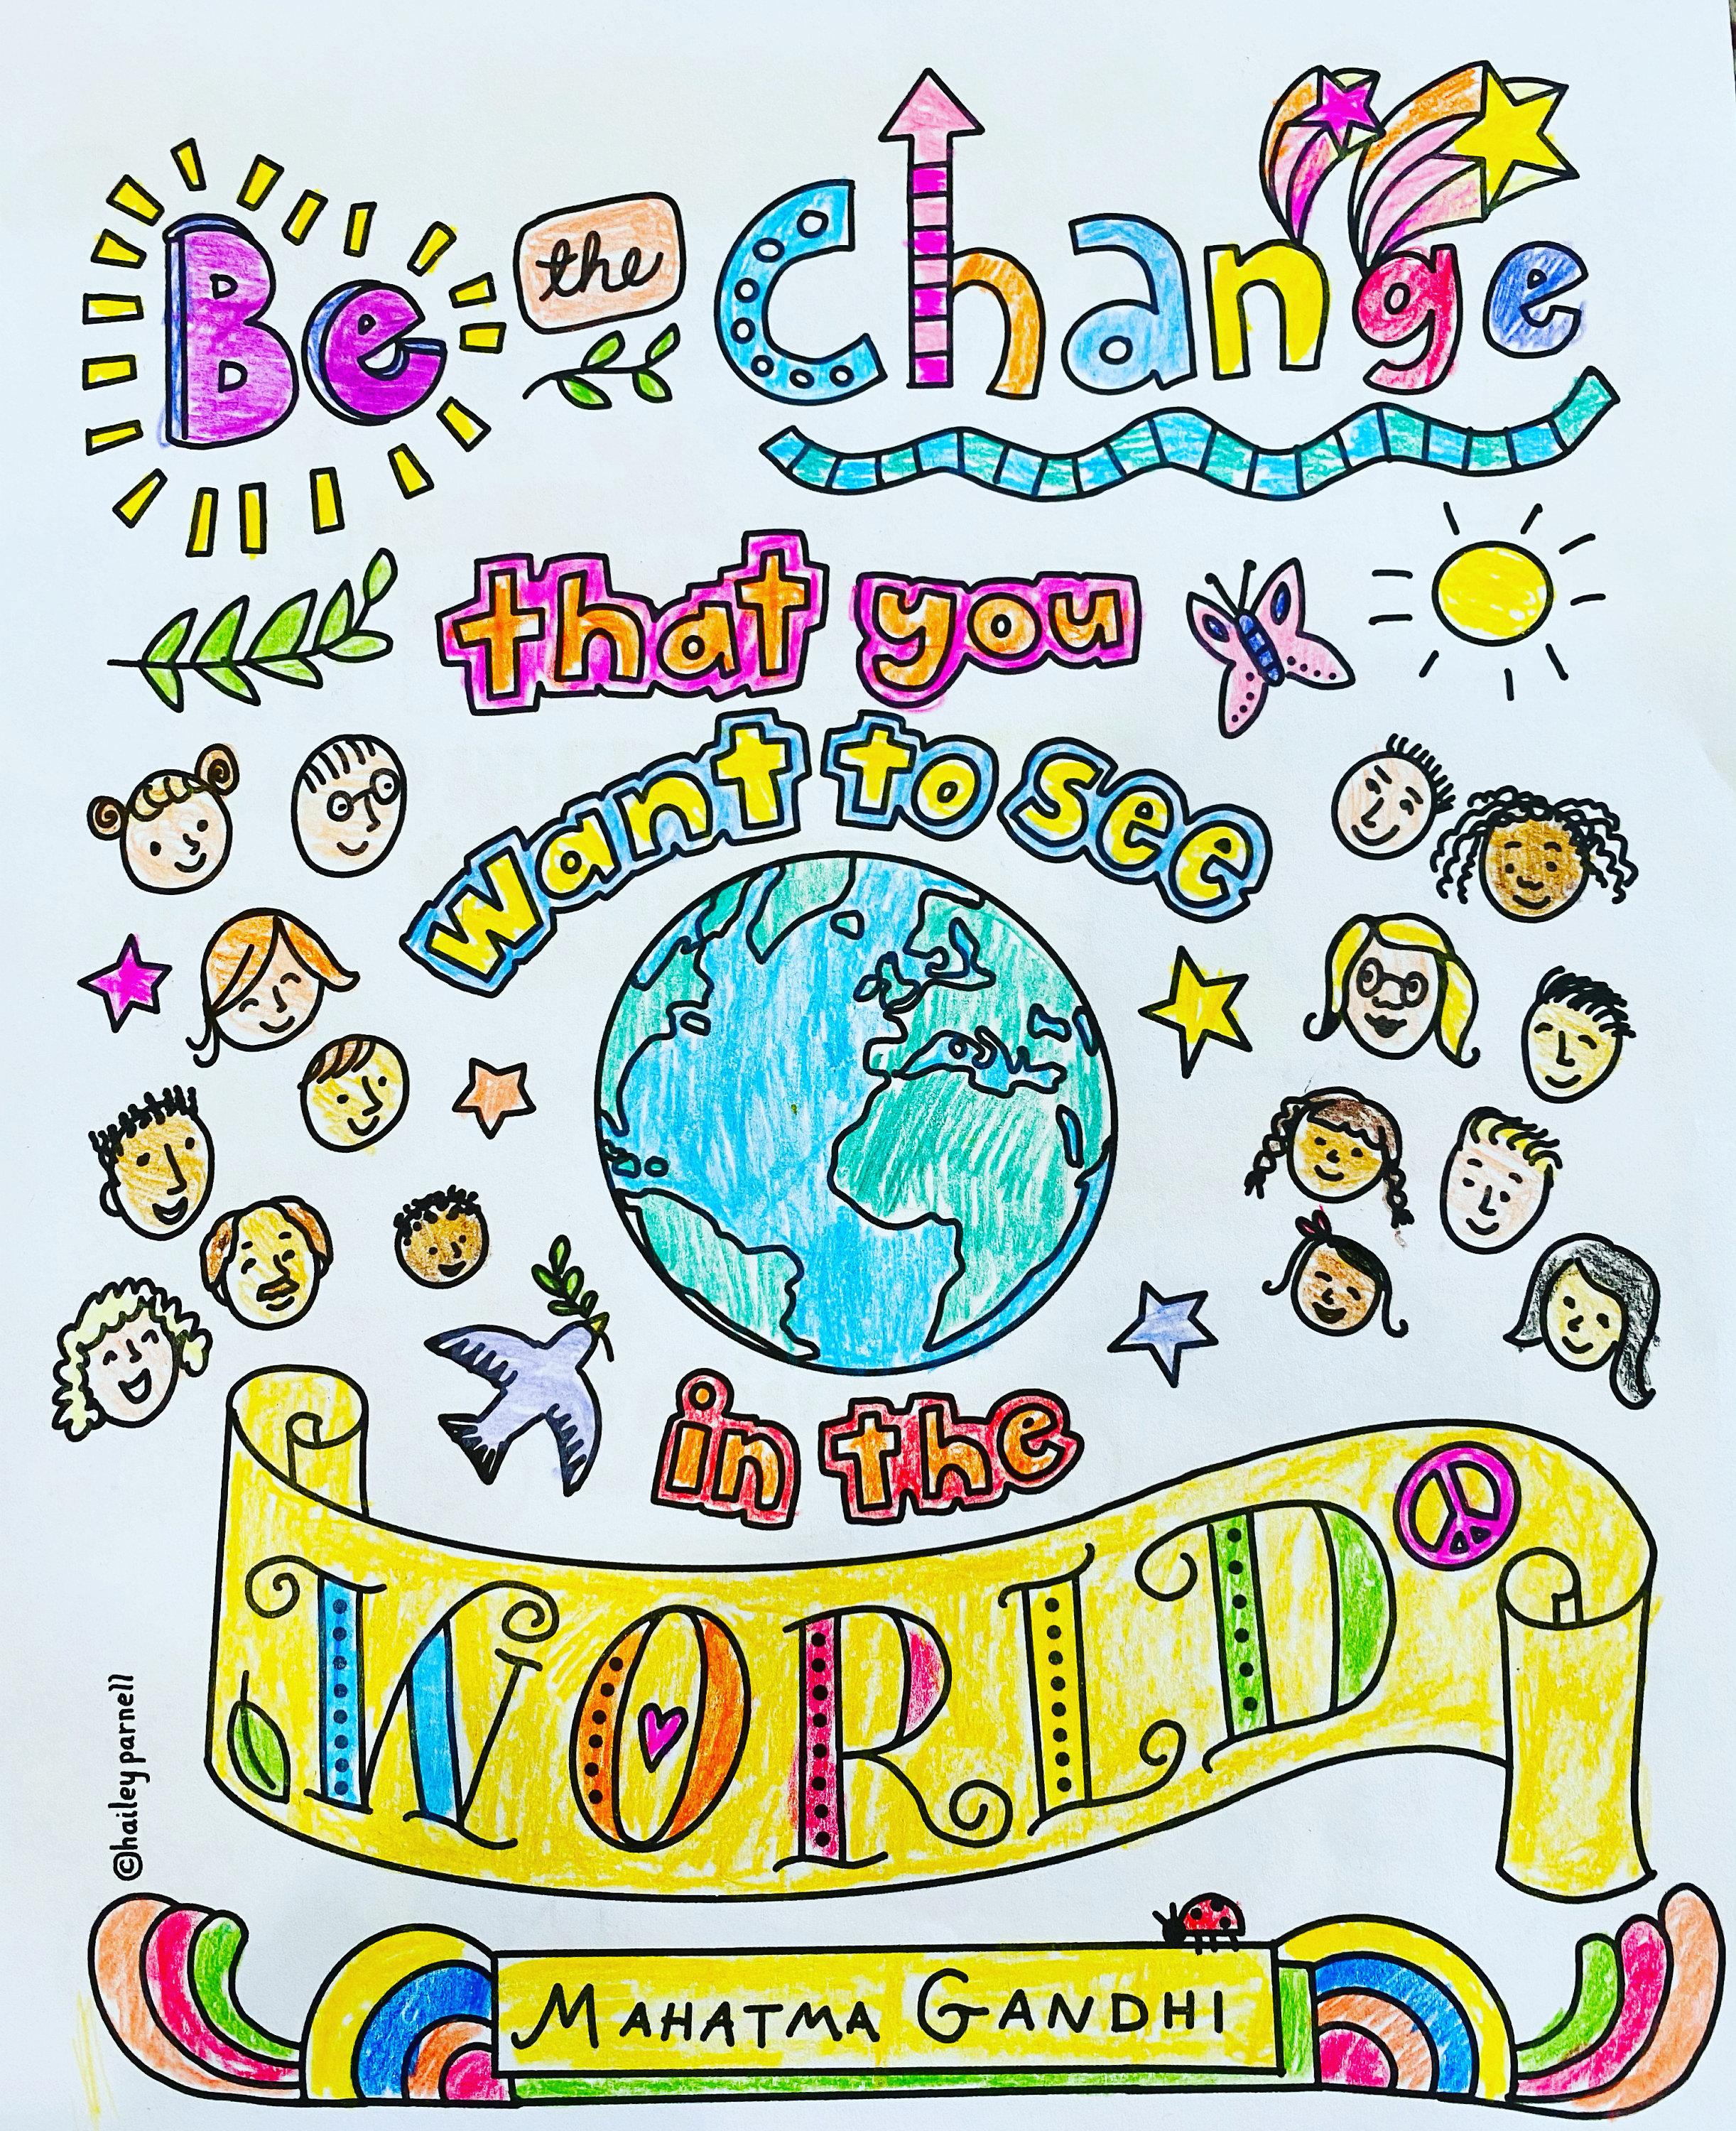 Be the change
that you
want to see
in the
WORLD
©haileyparnell
MAHATMA GANDHI